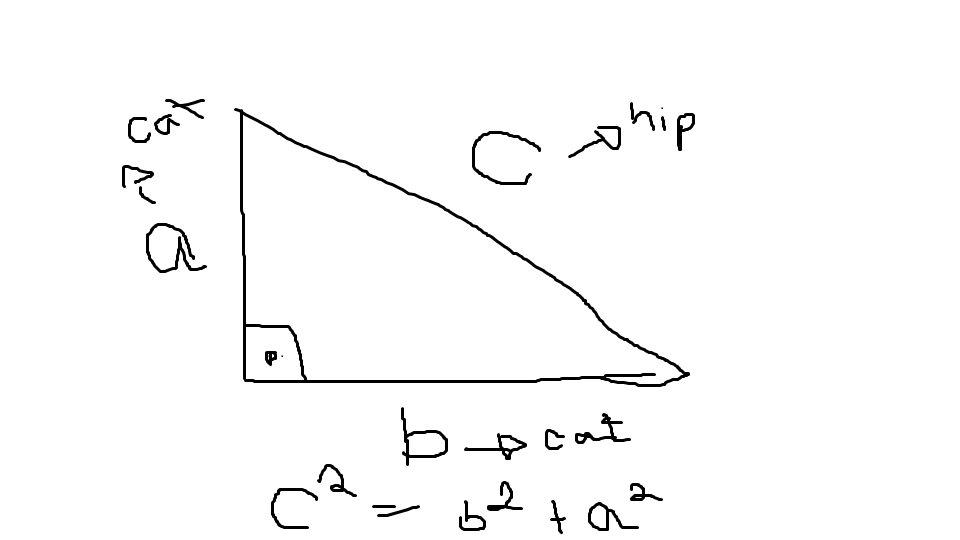 cat
a
C → hip
b → cat
c² = b² + a²